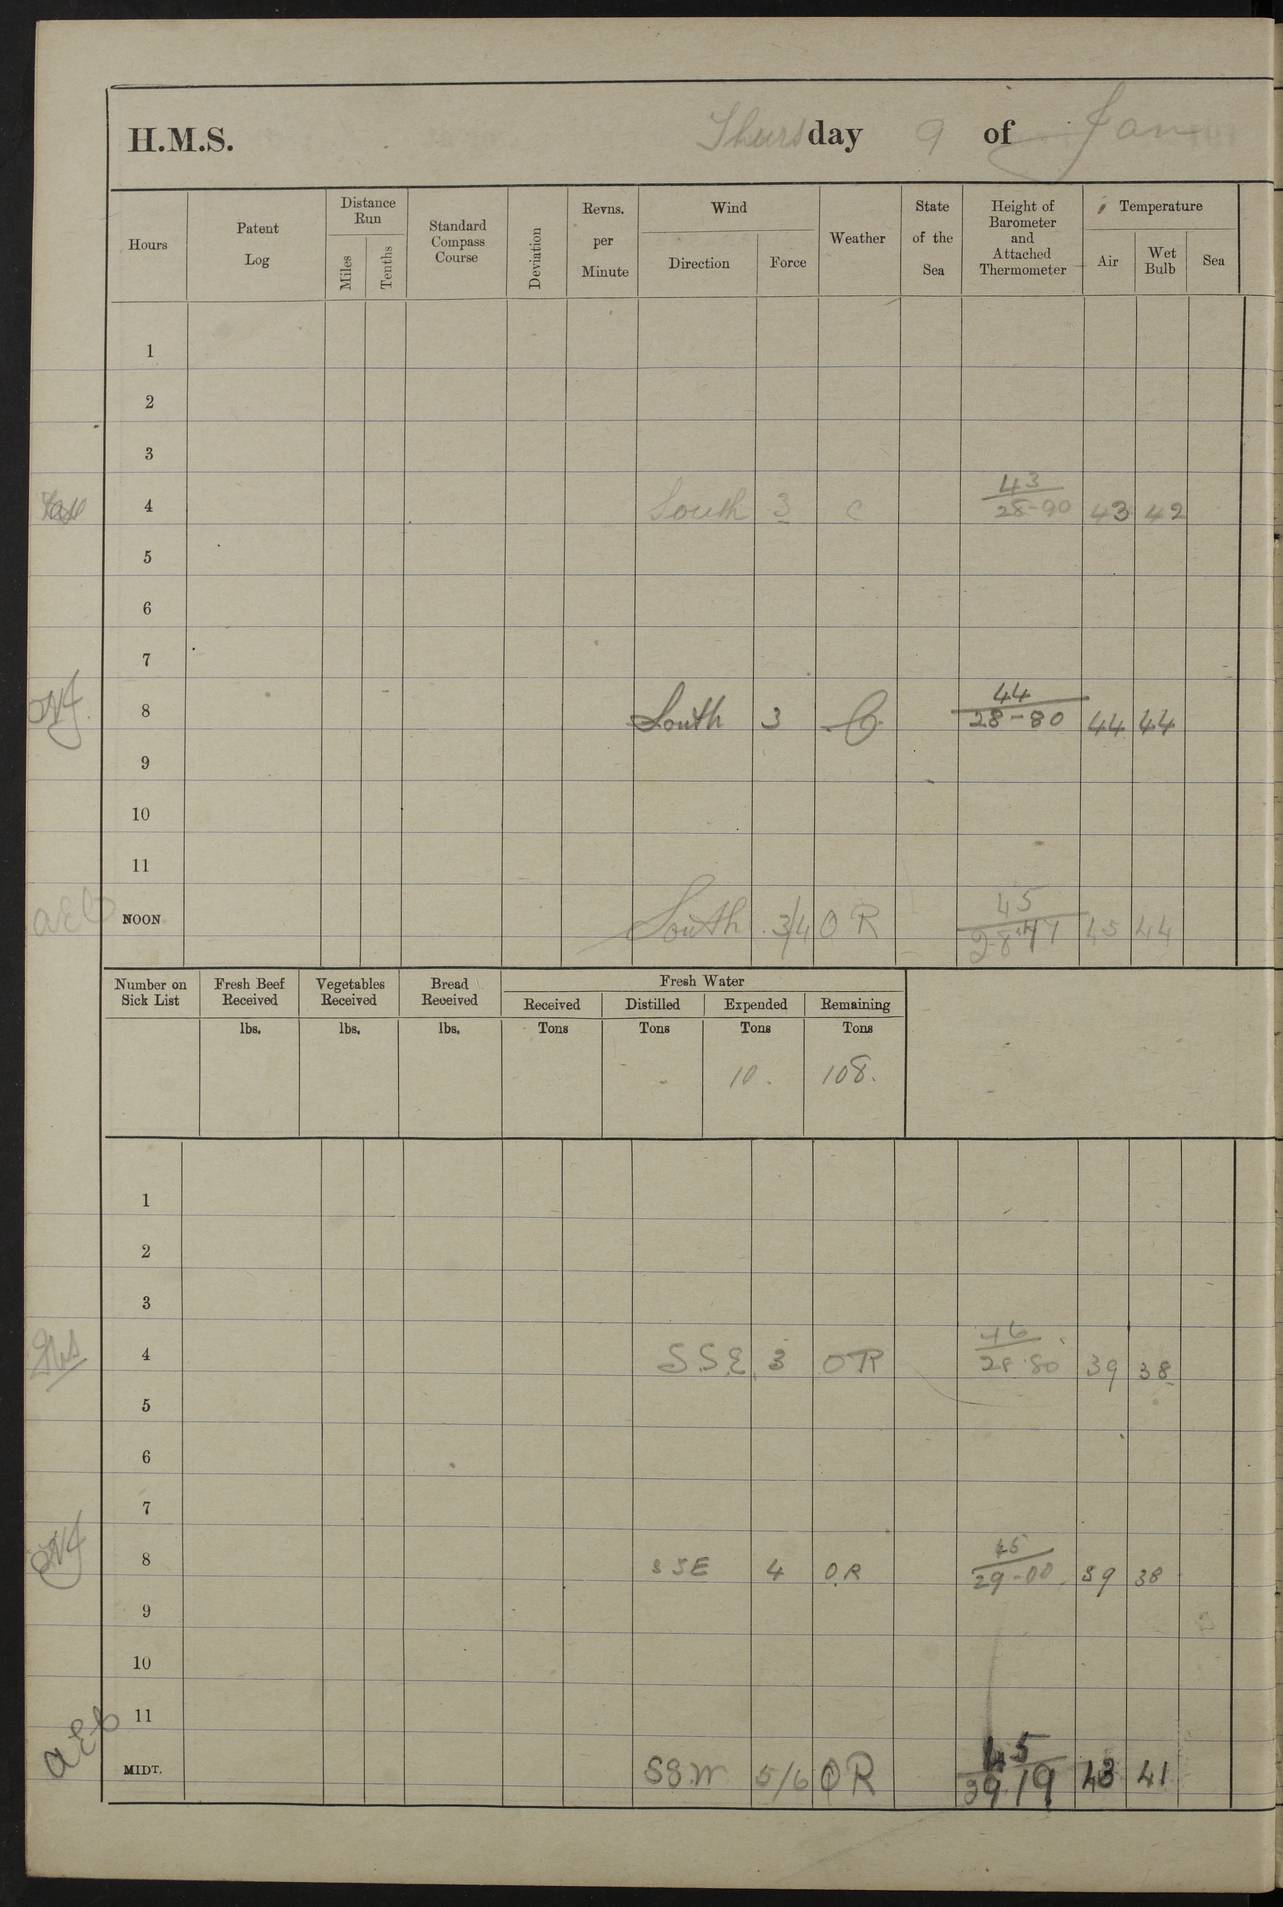 H.M.S. Thursday 9 of Jan
Hours Patent Log Distance Run Miles Tenths Standard Compass Course Deviation Revns. per Minute Wind Direction Force Weather State of the Sea Height of Barometer and Attached Thermometer Temperature Air Wet Bulb Sea
1
2
3
43
4 South 3 C 28-90 43 42
5
6
7
44
8 South 3 C 28-80 44 44
9
10
11
45
AEB NOON South 3/4 O R 45 44
Number on Sick List Fresh Beef Received Vegetables Received Bread Received Fresh Water
Received Distilled Expended Remaining
lbs. lbs. lbs. Tons Tons Tons Tons
- 10. 108.
1
2
3
46
4 S.S.E. 3 OR 28.80 39 38
5
6
7
45
8 SSE 4 O.R 29-00 39 38
9
10
11
45
AEB MIDT. SSW 5/6 OR 29.19 43 41